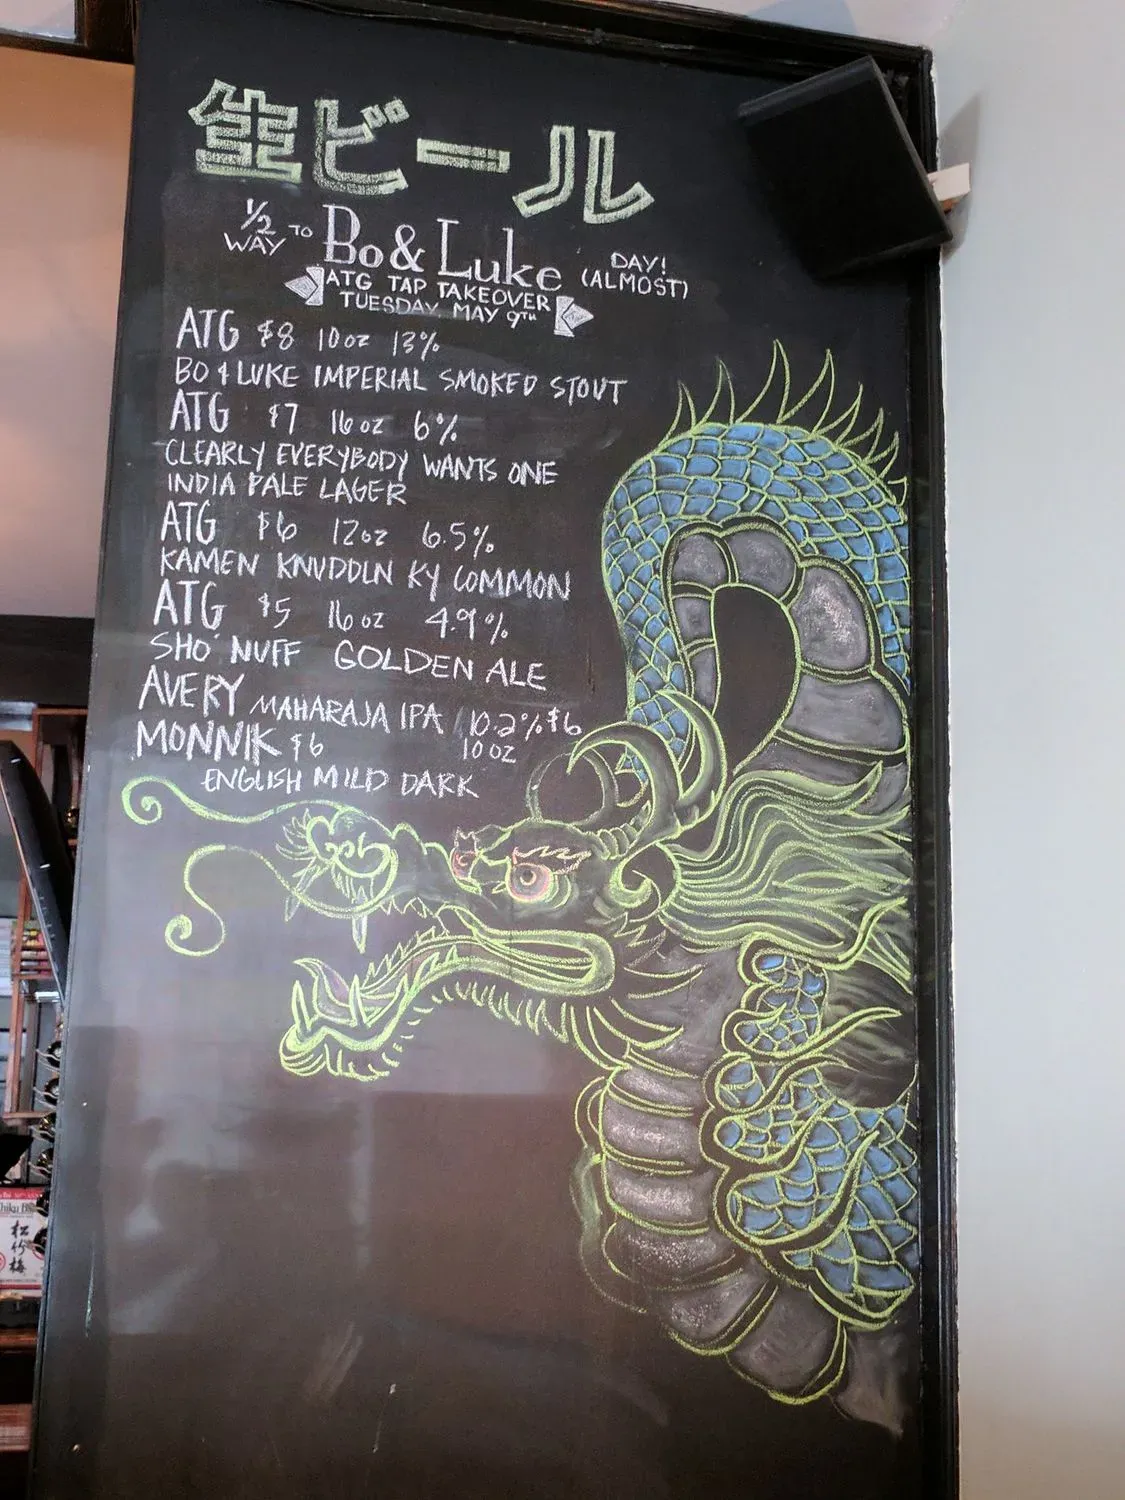 生ビール
1/2 WAY TO Bo & Luke DAY! (ALMOST)
ATG TAP TAKEOVER
TUESDAY MAY 9TH
ATG $8 10oz 13%
BO & LUKE IMPERIAL SMOKED STOUT
ATG $7 16oz 6%
CLEARLY EVERYBODY WANTS ONE
INDIA PALE LAGER
ATG $6 12oz 6.5%
KAMEN KNUDDLN KY COMMON
ATG $5 16oz 4.9%
SHO' NUFF GOLDEN ALE
AVERY MAHARAJA IPA 10.2% $6
MONNIK $6 10oz
ENGLISH MILD DARK
松竹梅